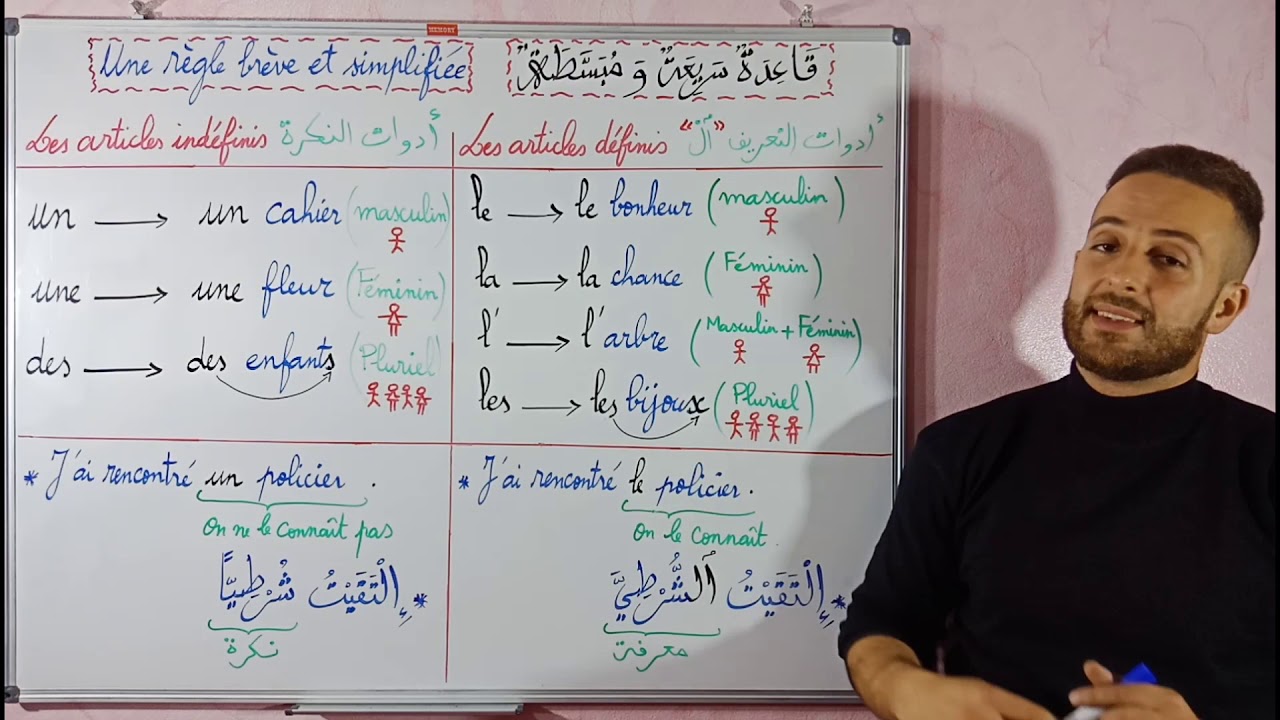 MEMORY
Une règle brève et simplifiée
قَاعِدَةٌ سَرِيعَةٌ وَ مُبَسَّطَةٌ
Les articles indéfinis أدوات النكرة
un → un cahier (masculin)
une → une fleur (Féminin)
des → des enfants (Pluriel)
* J'ai rencontré un policier.
On ne le connaît pas
* إِلْتَقَيْتُ شُرْطِيًّا
نكرة
Les articles définis أدوات التعريف "أل"
le → le bonheur (masculin)
la → la chance (Féminin)
l' → l'arbre (Masculin + Féminin)
les → les bijoux (Pluriel)
* J'ai rencontré le policier.
On le connaît.
* إِلْتَقَيْتُ اَلشُّرْطِيَّ
معرفة